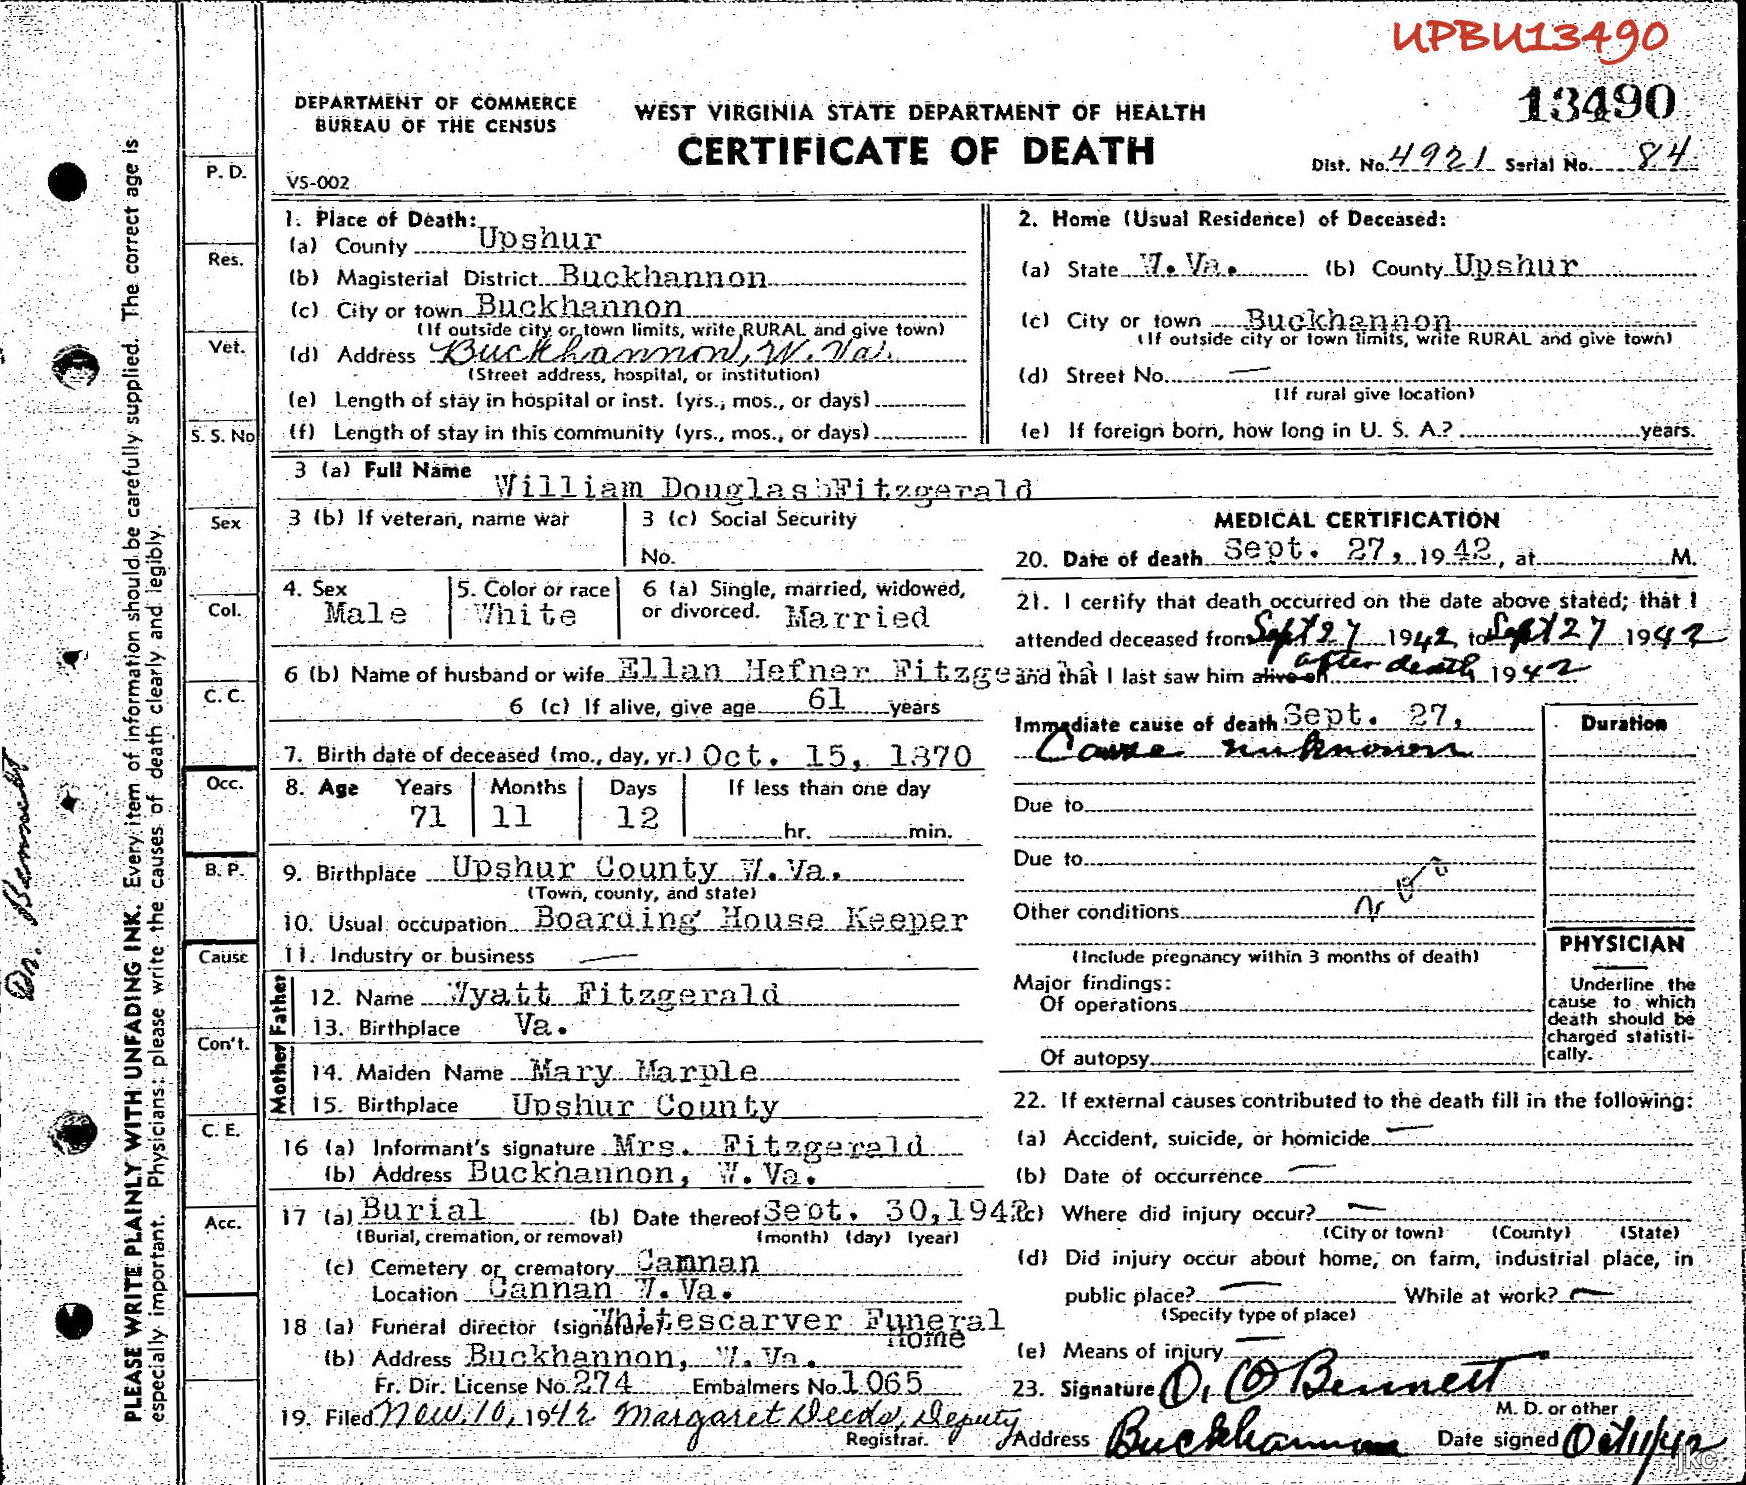 UPBU13490
13490
DEPARTMENT OF COMMERCE
BUREAU OF THE CENSUS
WEST VIRGINIA STATE DEPARTMENT OF HEALTH
CERTIFICATE OF DEATH
VS-002
Dist. No. 4921 Serial No. 84
1. Place of Death:
(a) County Upshur
(b) Magisterial District Buckhannon
(c) City or town Buckhannon
(If outside city or town limits, write RURAL and give town)
(d) Address Buckhannon, W. Va.
(Street address, hospital, or institution)
(e) Length of stay in hospital or inst. (yrs., mos., or days)
(f) Length of stay in this community (yrs., mos., or days)
2. Home (Usual Residence) of Deceased:
(a) State W. Va. (b) County Upshur
(c) City or town Buckhannon
(If outside city or town limits, write RURAL and give town)
(d) Street No. —
(If rural give location)
(e) If foreign born, how long in U. S. A.? years.
3 (a) Full Name William Douglas Fitzgerald
3 (b) If veteran, name war
3 (c) Social Security
No.
4. Sex Male
5. Color or race White
6 (a) Single, married, widowed,
or divorced. Married
6 (b) Name of husband or wife Ellan Hefner Fitzgerald
6 (c) If alive, give age 61 years
7. Birth date of deceased (mo., day, yr.) Oct. 15, 1870
8. Age Years Months Days If less than one day
71 11 12 hr. min.
9. Birthplace Upshur County W. Va.
(Town, county, and state)
10. Usual occupation Boarding House Keeper
11. Industry or business —
Father
12. Name Wyatt Fitzgerald
13. Birthplace Va.
Mother
14. Maiden Name Mary Marple
15. Birthplace Upshur County
16 (a) Informant's signature Mrs. Fitzgerald
(b) Address Buckhannon, W. Va.
17 (a) Burial (b) Date thereof Sept. 30, 1942
(Burial, cremation, or removal) (month) (day) (year)
(c) Cemetery or crematory Camnan
Location Cannan W. Va.
18 (a) Funeral director (signature) Whitescarver Funeral
Home
(b) Address Buckhannon, W. Va.
Fr. Dir. License No. 274 Embalmers No. 1065
19. Filed Nov. 10, 1942 Margaret Deeds, Deputy
Registrar.
MEDICAL CERTIFICATION
20. Date of death Sept. 27, 1942, at M.
21. I certify that death occurred on the date above stated; that I
attended deceased from Sept 27 1942 to Sept 27 1942
and that I last saw him alive on after death 1942
Immediate cause of death Sept. 27,
Cause unknown
Duration
Due to
Due to
Other conditions
(Include pregnancy within 3 months of death)
Major findings:
Of operations
Of autopsy
PHYSICIAN
Underline the
cause to which
death should be
charged statisti-
cally.
22. If external causes contributed to the death fill in the following:
(a) Accident, suicide, or homicide —
(b) Date of occurrence —
(c) Where did injury occur? —
(City or town) (County) (State)
(d) Did injury occur about home, on farm, industrial place, in
public place? — While at work? —
(Specify type of place)
(e) Means of injury —
23. Signature O. O Bennett
M. D. or other
Address Buckhannon Date signed Oct/11/42
jkc
P. D.
Res.
Vet.
S. S. No
Sex
Col.
C. C.
Occ.
B. P.
Cause
Con't.
C. E.
Acc.
PLEASE WRITE PLAINLY WITH UNFADING INK. Every item of information should be carefully supplied. The correct age is
especially important. Physicians: please write the causes of death clearly and legibly.
Dr. Bennett